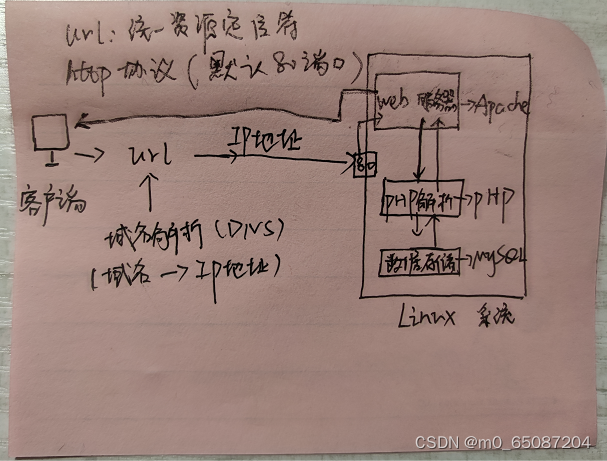 url:统一资源定位符
http协议(默认80端口)
web 服务器→Apache
IP地址
→ url →
80
客户端
PHP解析→PHP
域名解析(DNS)
(域名→IP地址)
→MySQL
Linux 系统
CSDN @m0_65087204